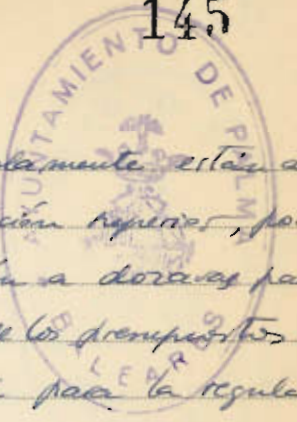 145
AYUNTAMIENTO DE PALMA
BALEARES
lamente están a
ción superior, po
n a dozavas pa
e los presupuestos
para la regula